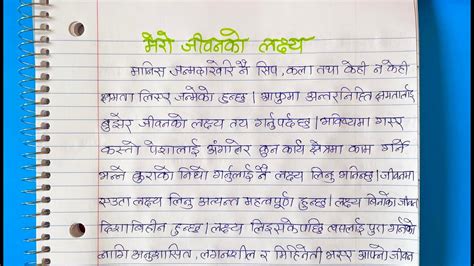 मेरो जीवनको लक्ष्य
मानिस जन्मदाखेरि नै सिप, कला तथा केही न केही
क्षमता लिएर जन्मेको हुन्छ। आफुमा अन्तरनिहित क्षमतालाई
बुझेर जीवनको लक्ष्य तय गर्नुपर्दछ। भविष्यमा गएर
कस्तो पेशालाई अंगालेर कुन कार्य क्षेत्रमा काम गर्ने
भन्ने कुराको निर्धो गर्नुलाई नै लक्ष्य लिनु भनिन्छ। जीवनमा
एउटा लक्ष्य लिनु अत्यन्त महत्वपूर्ण हुन्छ। लक्ष्य बिनाको जीवन
दिशाविहीन हुन्छ। लक्ष्य लिइसकेपछि त्यसलाई पुरा गर्नको
लागि अनुशासित, लगनशील र मिहिनेती भएर आफ्नो जीवन